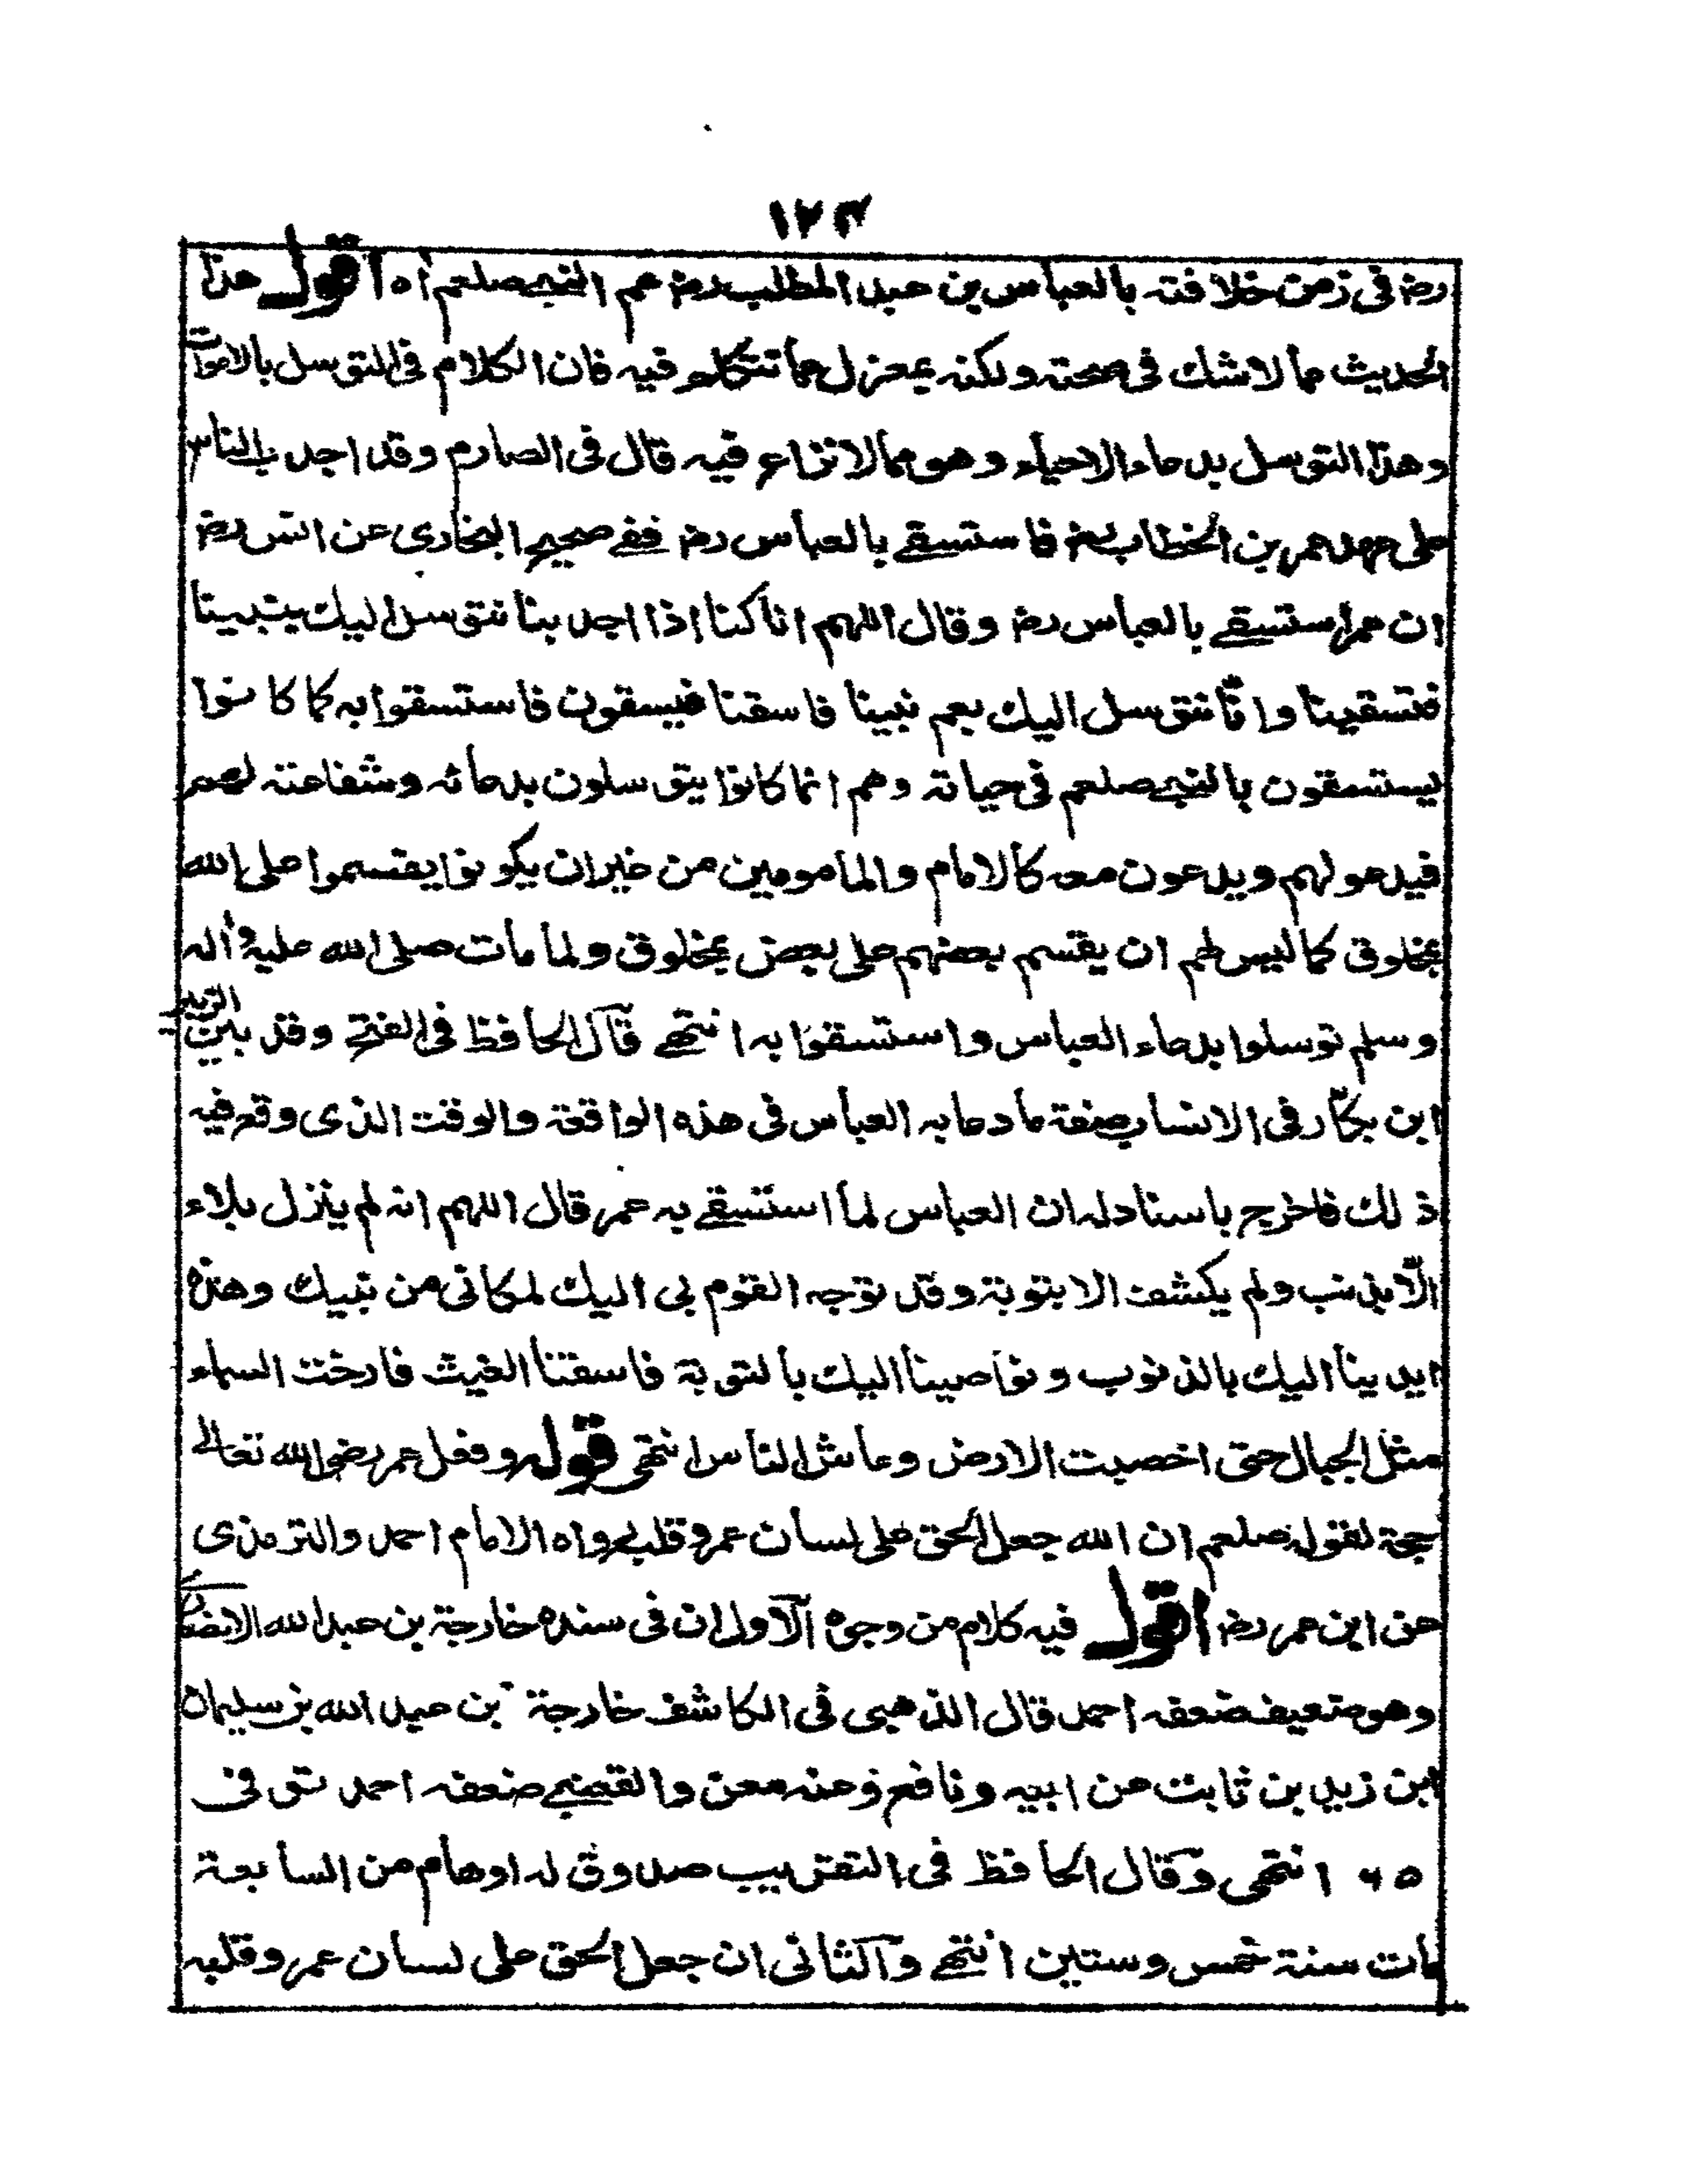 ١٢٣
رضـ فى زمن خلافته بالعباس بن عبد المطلب رضـ عم النبى صلعم اه اقول هذا
الحديث مما لا شك فى صحته ولكنه بمعزل مما نتكلم فيه فان الكلام فى التوسل بالاموات
وهذا التوسل بدعاء الاحياء وهو مما لا نزاع فيه قال فى الصارم وقد اجدب الناس
على عهد عمر بن الخطاب رضـ فاستسقى بالعباس رضـ ففى صحيح البخارى عن انس رضـ
ان عمر استسقى بالعباس رضـ وقال اللهم انا كنا اذا اجدبنا نتوسل اليك بنبينا
فتسقينا وانا نتوسل اليك بعم نبينا فاسقنا فيسقون فاستسقوا به كما كانوا
يستسقون بالنبى صلعم فى حياته وهم انما كانوا يتوسلون بدعائه وشفاعته لهم
فيدعو لهم ويدعون معه كالامام والمأمومين من غير ان يكونوا يقسموا على الله
بمخلوق كما ليس لهم ان يقسم بعضهم على بعض بمخلوق ولما مات صلى الله عليه واله
وسلم توسلوا بدعاء العباس واستسقوا به انتهى قال الحافظ فى الفتح وقد بين الزبير
ابن بكار فى الانساب صفة ما دعا به العباس فى هذه الواقعة والوقت الذى وقع فيه
ذلك فاخرج باسناد له ان العباس لما استسقى به عمر قال اللهم انه لم ينزل بلاء
الّا بذنب ولم يكشف الا بتوبة وقد توجه القوم بى اليك لمكانى من نبيك وهذه
ايدينا اليك بالذنوب ونواصينا اليك بالتوبة فاسقنا الغيث فارخت السماء
مثل الجبال حتى اخصبت الارض وعاش الناس انتهى قوله وفعل عمر رضى الله تعالى
حجة لقوله صلعم ان الله جعل الحق على لسان عمر وقلبه رواه الامام احمد والترمذى
عن ابن عمر رضـ اقول فيه كلام من وجوه الاول ان فى سنده خارجة بن عبد الله الانصارى
وهو ضعيف ضعفه احمد قال الذهبى فى الكاشف خارجة بن عبد الله بن سليمان
ابن زيد بن ثابت عن ابيه ونافع وعنه معن والقعنبى ضعفه احمد توفى
١٦٥ انتهى وقال الحافظ فى التقريب صدوق له اوهام من السابعة
مات سنة خمس وستين انتهى والثانى ان جعل الحق على لسان عمر وقلبه